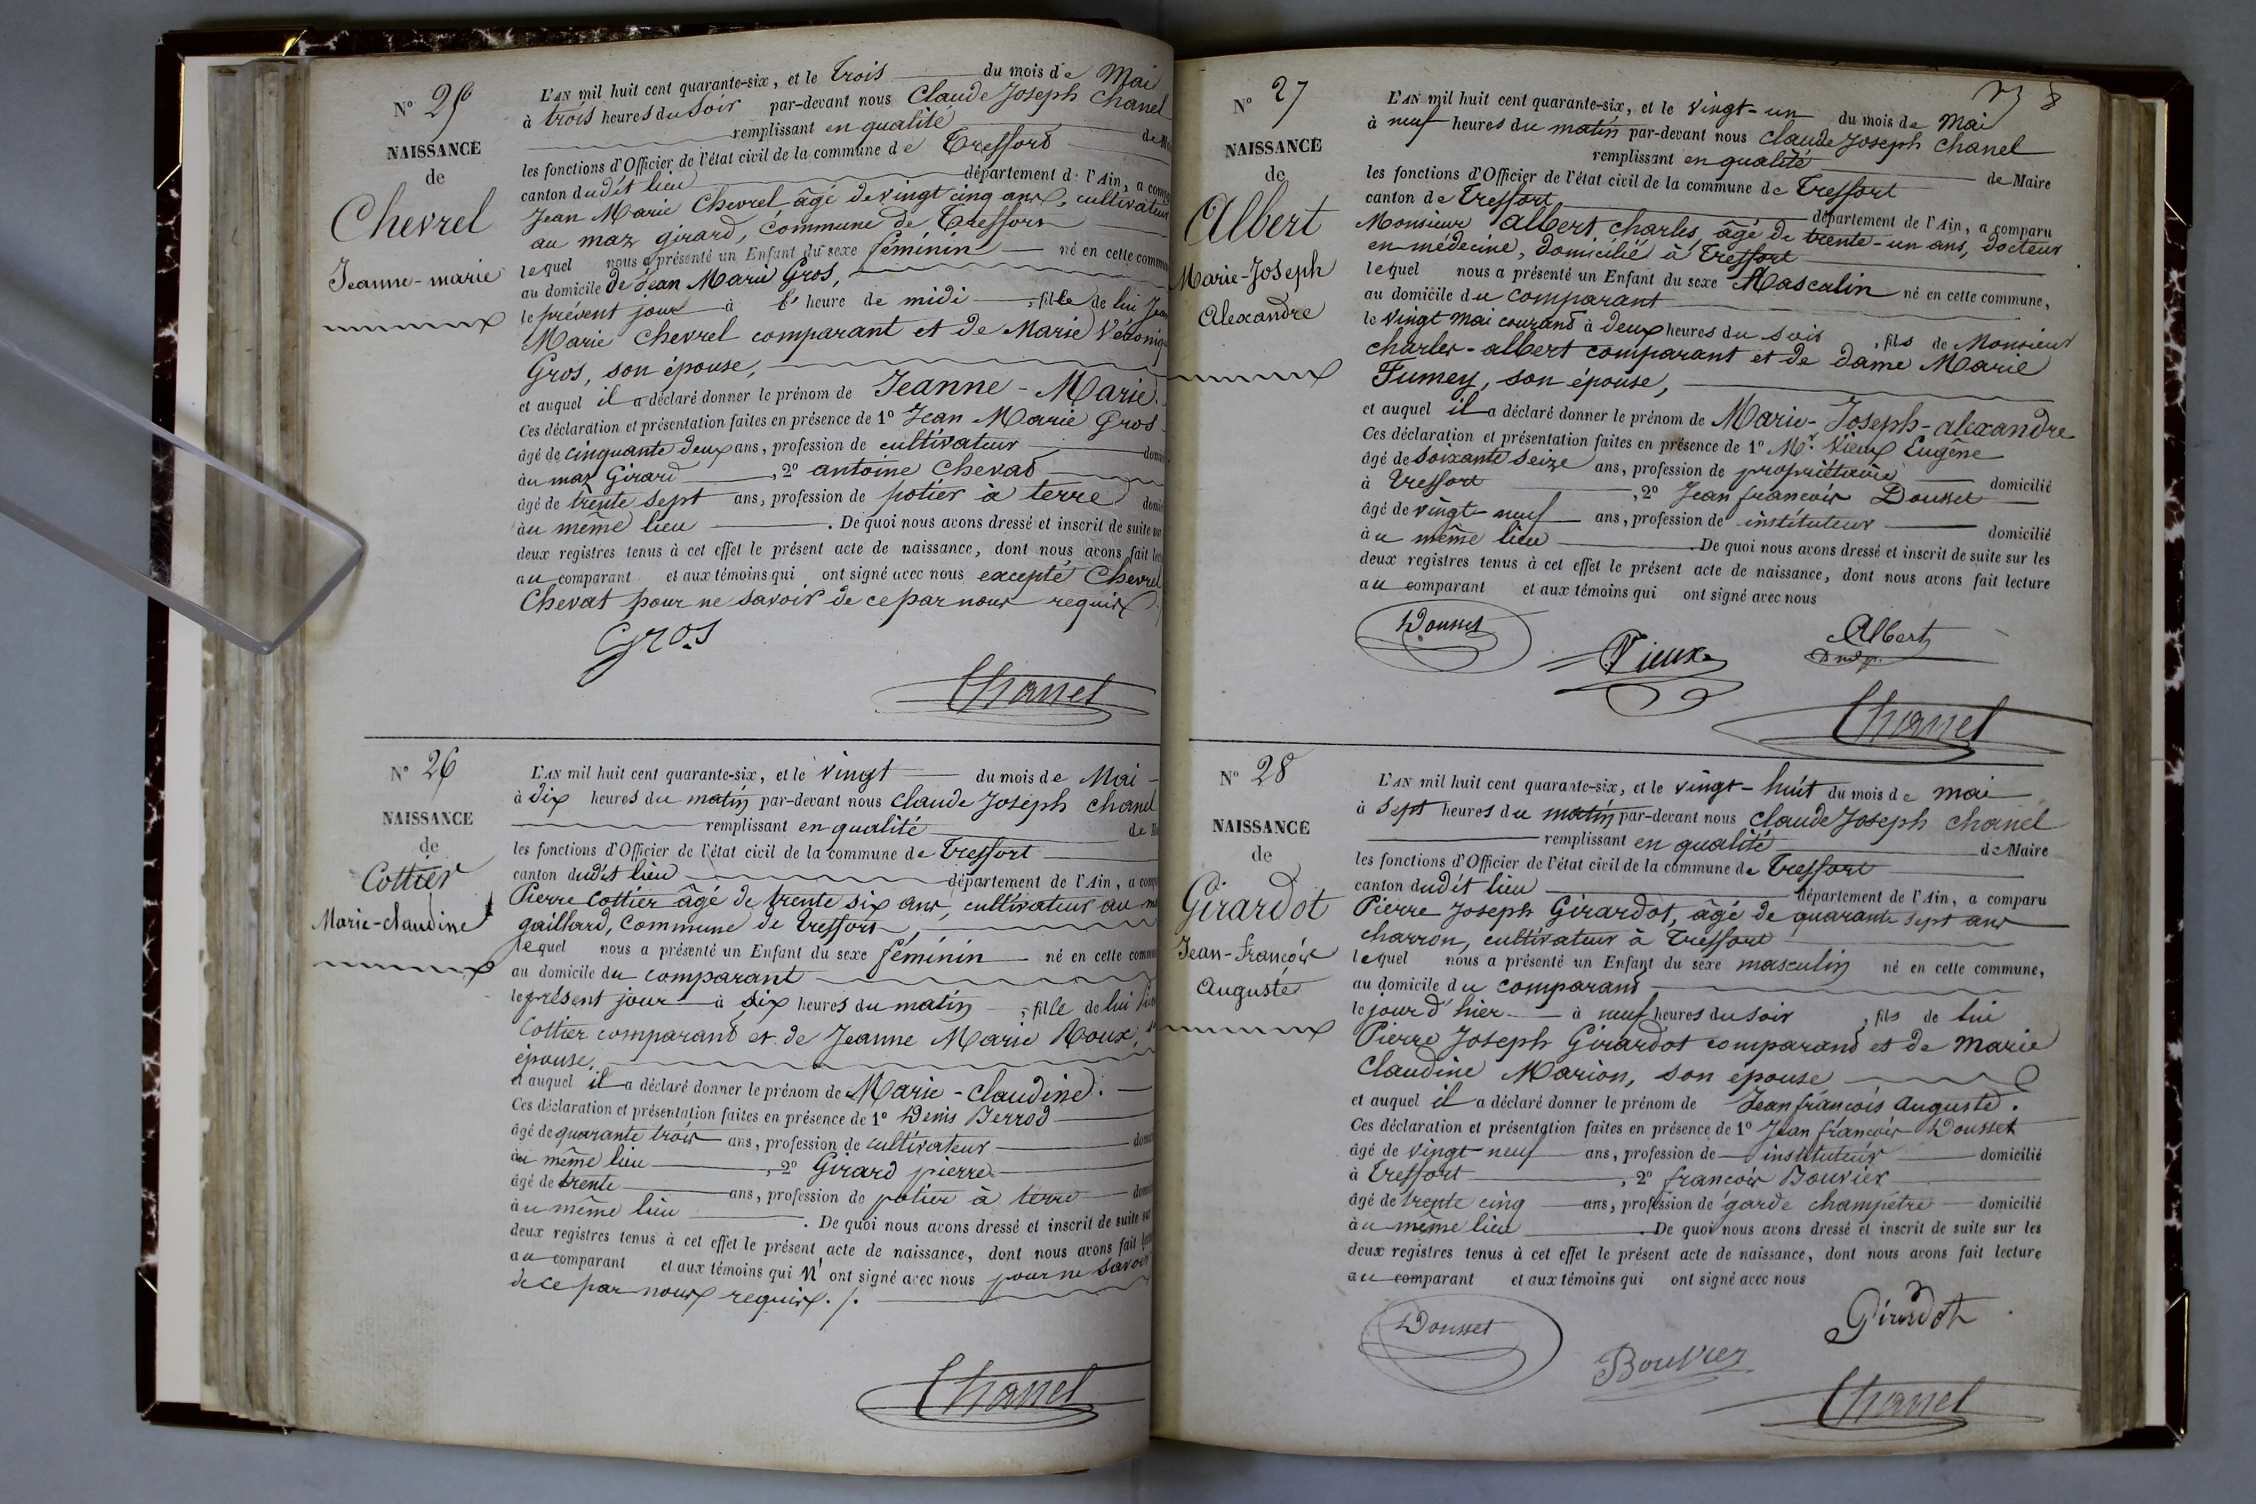 N° 25
NAISSANCE
de
Chevrel
Jeanne-marie
L'AN mil huit cent quarante-six, et le trois du mois de Mai
à trois heures du soir par-devant nous Claude Joseph Chanel
remplissant en qualité de
les fonctions d'Officier de l'état civil de la commune de Treffort
canton dudit lieu département de l'Ain, a
Jean Marie Chevrel âgé de vingt cinq ans, cultivateur
au maz girard, commune de Treffort
lequel nous a présenté un Enfant du sexe féminin né en cette
au domicile de Jean Marie Gros,
le présent jour à heure de midi, fille de lui Jean
Marie Chevrel comparant et de Marie
Gros, son épouse,
et auquel il a déclaré donner le prénom de Jeanne-Marie.
Ces déclaration et présentation faites en présence de 1° Jean Marie Gros
âgé de cinquante deux ans, profession de cultivateur
au maz Girard, 2° antoine Chevat
âgé de trente sept ans, profession de potier à terre
au même lieu. De quoi nous avons dressé et inscrit de suite sur
deux registres tenus à cet effet le présent acte de naissance, dont nous avons fait
au comparant et aux témoins qui ont signé avec nous excepté Chevrel
Chevat pour ne savoir de ce par nous requis
Gros
Chanel
N° 26
NAISSANCE
de
Cottier
Marie-claudine
L'AN mil huit cent quarante-six, et le vingt du mois de Mai
à dix heures du matin par-devant nous Claude Joseph Chanel
remplissant en qualité de
les fonctions d'Officier de l'état civil de la commune de Treffort
canton dudit lieu département de l'Ain, a
Pierre Cottier âgé de trente six ans, cultivateur au
gaillard, Commune de Treffort,
lequel nous a présenté un Enfant du sexe féminin né en cette
au domicile du comparant
le présent jour à six heures du matin, fille de lui
Cottier comparant et de Jeanne Marie Roux,
épouse,
et auquel il a déclaré donner le prénom de Marie-Claudine.
Ces déclaration et présentation faites en présence de 1° Denis Berrod
âgé de quarante trois ans, profession de cultivateur
au même lieu, 2° Girard pierre
âgé de trente ans, profession de potier à terre
au même lieu. De quoi nous avons dressé et inscrit de suite sur
deux registres tenus à cet effet le présent acte de naissance, dont nous avons fait
au comparant et aux témoins qui n'ont signé avec nous pour ne savoir
de ce par nous requis ./.
Chanel
8
N° 27
NAISSANCE
de
Albert
Marie-Joseph
Alexandre
L'AN mil huit cent quarante-six, et le vingt-un du mois de Mai
à neuf heures du matin par-devant nous Claude Joseph Chanel
remplissant en qualité de Maire
les fonctions d'Officier de l'état civil de la commune de Treffort
canton de Treffort département de l'Ain, a comparu
Monsieur Albert Charles, âgé de trente-un ans, docteur
en médecine, domicilié à Treffort
lequel nous a présenté un Enfant du sexe Masculin né en cette commune,
au domicile du comparant
le vingt mai courant à deux heures du soir, fils de Monsieur
Charles-albert comparant et de dame Marie
Fumey, son épouse,
et auquel il a déclaré donner le prénom de Marie-Joseph-alexandre
Ces déclaration et présentation faites en présence de 1° Mr. Vieux Eugêne
âgé de soixante seize ans, profession de propriétaire domicilié
à Treffort, 2° Jean françois Dousset
âgé de vingt-neuf ans, profession de instituteur domicilié
au même lieu. De quoi nous avons dressé et inscrit de suite sur les
deux registres tenus à cet effet le présent acte de naissance, dont nous avons fait lecture
au comparant et aux témoins qui ont signé avec nous
Dousset
Vieux
Albert
Chanel
N° 28
NAISSANCE
de
Girardot
Jean-françois
Auguste
L'AN mil huit cent quarante-six, et le vingt-huit du mois de mai
à sept heures du matin par-devant nous Claude Joseph Chanel
remplissant en qualité de Maire
les fonctions d'Officier de l'état civil de la commune de Treffort
canton dudit lieu département de l'Ain, a comparu
Pierre Joseph Girardot, âgé de quarante sept ans
charron, cultivateur à Treffort
lequel nous a présenté un Enfant du sexe masculin né en cette commune,
au domicile du comparant
le jour d'hier à neuf heures du soir, fils de lui
Pierre Joseph Girardot comparant et de Marie
Claudine Marion, son épouse
et auquel il a déclaré donner le prénom de Jean françois Auguste.
Ces déclaration et présentation faites en présence de 1° Jean françois Dousset
âgé de vingt neuf ans, profession de instituteur domicilié
à Treffort, 2° françois Bouvier
âgé de trente cinq ans, profession de garde champêtre domicilié
au même lieu. De quoi nous avons dressé et inscrit de suite sur les
deux registres tenus à cet effet le présent acte de naissance, dont nous avons fait lecture
au comparant et aux témoins qui ont signé avec nous
Dousset
Bouvier
Girardot
Chanel